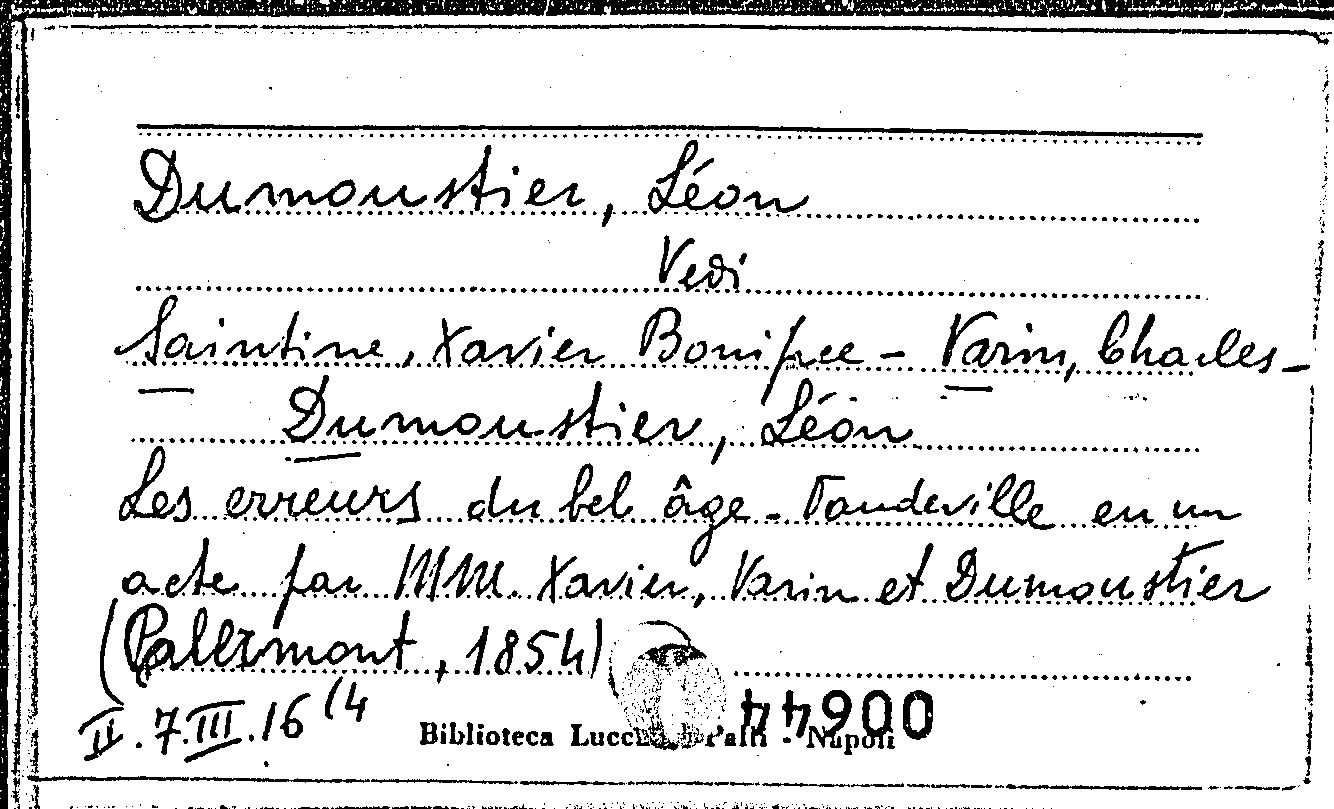 Dumoustier, Léon
Vedi
Saintine, Xavier Bonifice - Varin, Charles -
Dumoustier, Léon
Les erreurs du bel âge - Vaudeville en un
acte par MM. Xavier, Varin et Dumoustier
(Pallermont, 1854)
II. 7.III.16 (4
Biblioteca Lucchesi Palli - Napoli